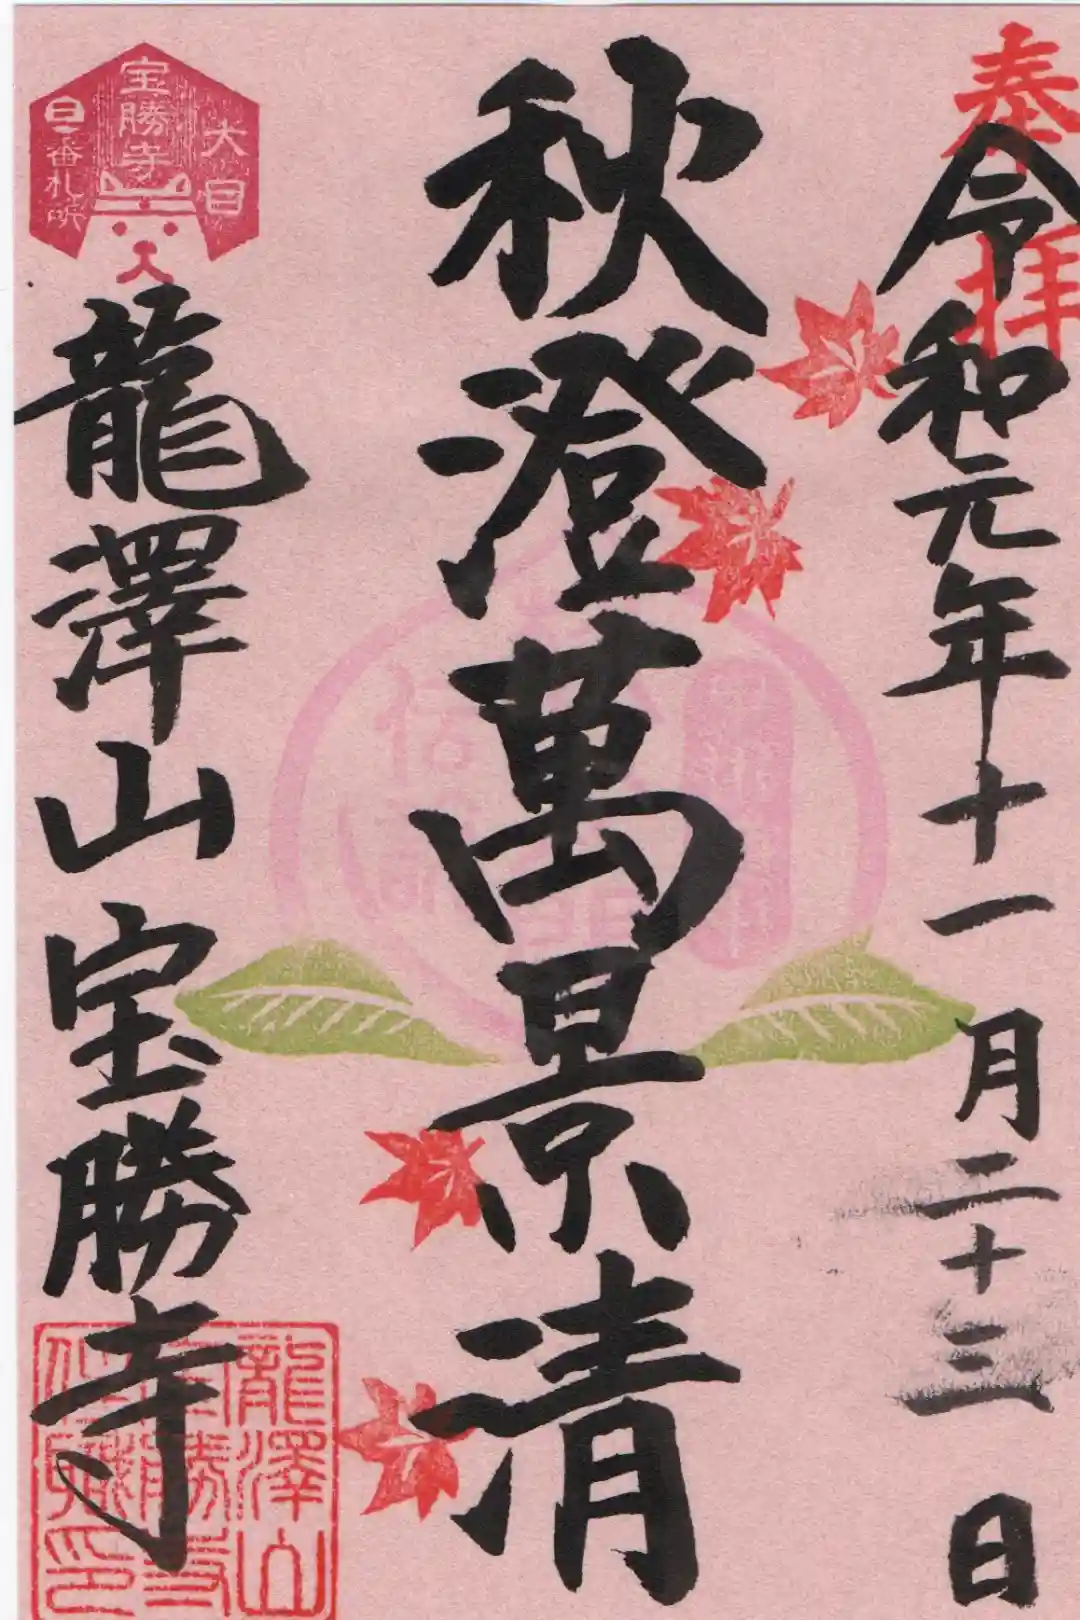 奉拝
令和元年十一月二十三日
秋澄萬景清
大目
宝勝寺
龍澤山宝勝寺
龍澤山
宝勝寺
住職印